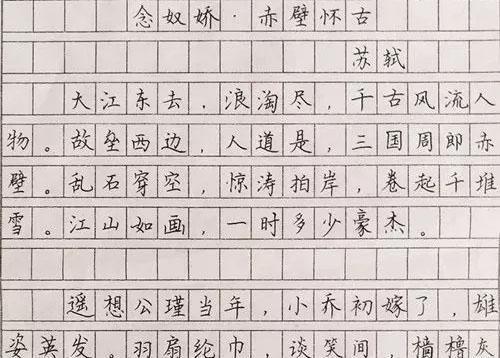 念奴娇·赤壁怀古
苏轼
大江东去,浪淘尽,千古风流人
物。故垒西边,人道是,三国周郎赤
壁。乱石穿空,惊涛拍岸,卷起千堆
雪。江山如画,一时多少豪杰。
遥想公瑾当年,小乔初嫁了,雄
姿英发。羽扇纶巾,谈笑间,樯橹灰